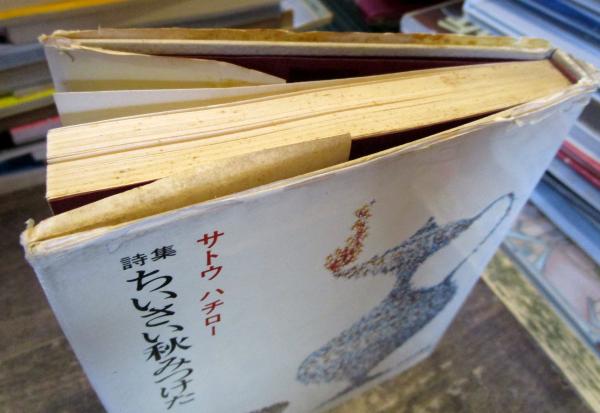 サトウ ハチロー
詩集
ちいさい秋みつけた